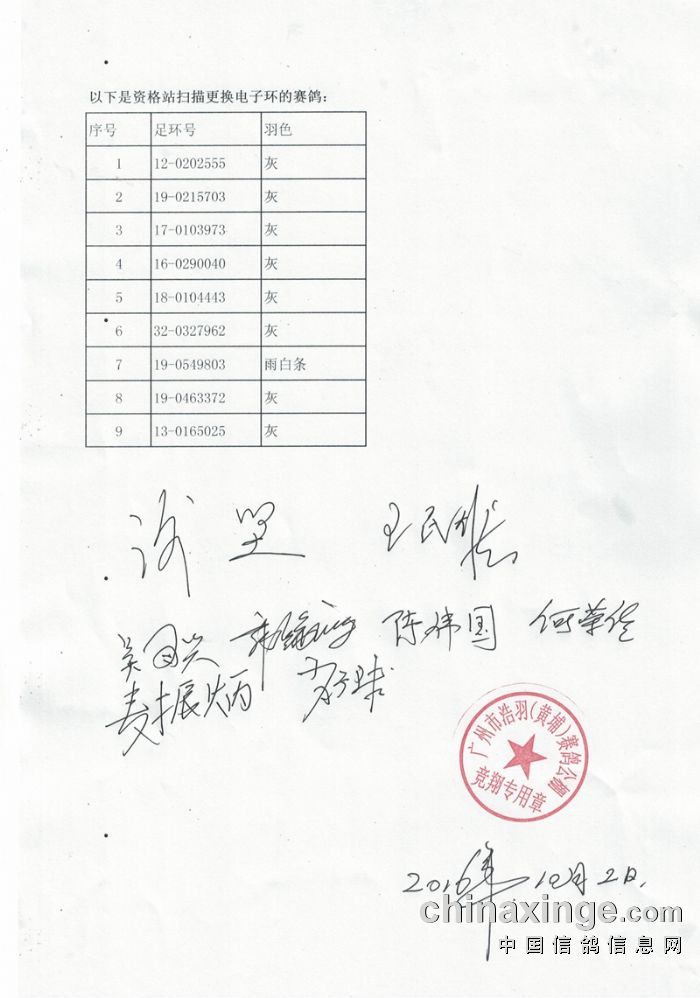 以下是资格站扫描更换电子环的赛鸽：
序号 足环号 羽色
1 12-0202555 灰
2 19-0215703 灰
3 17-0103973 灰
4 16-0290040 灰
5 18-0104443 灰
6 32-0327962 灰
7 19-0549803 雨白条
8 19-0463372 灰
9 13-0165025 灰
王民
吴国兴 陈伟国 何荣佳
麦振炳
广州市浩羽(黄埔)赛鸽公棚
竞翔专用章
2016年10月2日.
chinaxinge.com
中国信鸽信息网